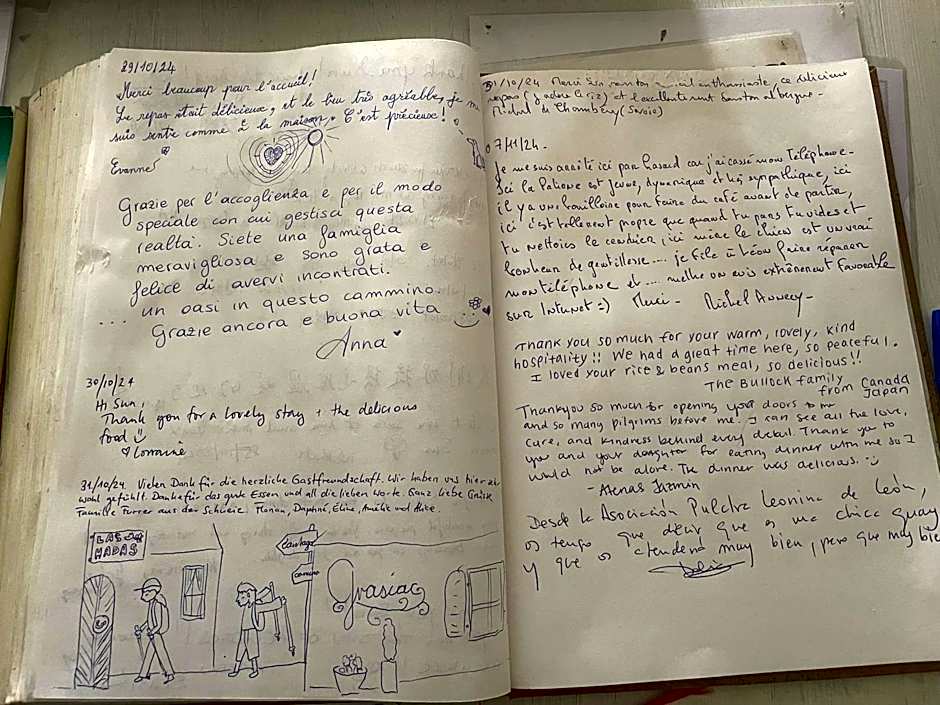 29/10/24
Merci beaucoup pour l'accueil!
Le repas était délicieux, et le lieu très agréable, je m
suis sentie comme à la maison. C'est précieux!
Evanne
Grazie per l'accoglienza e per il modo
speciale con cui gestisci questa
realtà. Siete una famiglia
meravigliosa e sono grata e
felice di avervi incontrati.
... un oasi in questo cammino.
Grazie ancora e buona vita
Anna
30/10/24
Hi Sun,
Thank you for a lovely stay + the delicious
food
Lorraine
31/10/24. Vielen Dank für die herzliche Gastfreundschaft. Wir haben uns hier
wohl gefühlt. Danke für das gute Essen und all die lieben Worte. Ganz liebe Grüsse
Familie Furrer aus der Schweiz. Florian, Daphné, Eline, Amélie und
LAS
MADAS
Santiago
camino
Grasias
31/10/24 Merci enthousiaste, ce délicieux
repas (j'adore le riz) et l'excellente
Michel de Chambéry (Savoie)
07/11/24.
Je me suis arrêté ici par hasard car j'ai cassé mon Téléphone.
Ici la Patrone est Jeune, dynamique et très sympathique, ici
il y a une bouilloire pour faire du café avant de partir,
ici c'est tellement propre que quand tu pars tu vides et
tu nettoies le cendrier, ici même le chien est un vrai
bonheur de gentillesse.... je file à Léon faire réparer
mon téléphone et .... mettre un avis extrêmement favorable
sur Internet =) Merci - Michel Annecy -
Thank you so much for your warm, lovely, kind
hospitality!! We had a great time here, so peaceful.
I loved your rice & beans meal, so delicious!!
The Bullock family
from Canada
Japan
Thankyou so much for opening your doors to me
and so many pilgrims before me. I can see all the love,
care, and kindness behind every detail. Thank you to
you and your daughter for eating dinner with me so I
would not be alone. The dinner was delicious.
- Atenas Jazmin
Desde la Asociación Pulchra Leonina de León,
os tengo que decir que es una chica guay
y que os atenderá muy bien, pero que muy bie